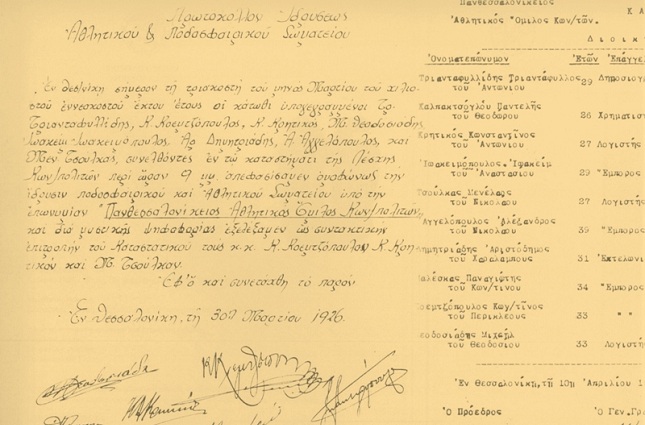 Πρωτόκολλον Ἱδρύσεως
Ἀθλητικοῦ & Ποδοσφαιρικοῦ Σωματείου
Ἐν Θεσ/νίκη σήμερον τῇ τριακοστῇ τοῦ μηνός Μαρτίου τοῦ χιλιο
στοῦ ἐννεακοστοῦ ἕκτου ἔτους οἱ κάτωθι ὑπογεγραμμένοι Τρ.
Τριανταφυλλίδης, Κ. Κρεμτζόπουλος, Κ. Κρητικός, Μιχ. Θεοδοσιάδης,
Ἰωακείμ Ἰωακειμόπουλος, Ἀρ. Δημητριάδης, Ἀ. Ἀγγελόπουλος, καί
Μεν. Τσούλκας, συνελθόντες ἐν τῷ καταστήματι τῆς Λέσχης
Κων/πολιτῶν περί ὥραν 9 μμ. ἀπεφασίσαμεν ὁμοφώνως τήν
ἵδρυσιν ποδοσφαιρικοῦ καί Ἀθλητικοῦ Σωματείου ὑπό τήν
ἐπωνυμίαν Πανθεσσαλονίκειος Ἀθλητικός Ὅμιλος Κων/πολιτῶν
καί διά μυστικῆς ψηφοφορίας ἐξελέξαμεν ὡς συντακτικήν
ἐπιτροπήν τοῦ Καταστατικοῦ τούς κ.κ. Κ. Κρεμτζόπουλον, Κ. Κρη
τικόν καί Μ. Τσούλκαν.
Ἐφ' ᾧ καί συνετάχθη τό παρόν
Ἐν Θεσσαλονίκη, τῇ 30ῃ Μαρτίου 1926.
Πανθεσσαλονίκειος
Ἀθλητικός Ὅμιλος Κων/τῶν.
Κ Α
Δ ι ο ι κ
Ὀνοματεπώνυμον Ἐτῶν Ἐπάγγελ
Τριανταφυλλίδης Τριαντάφυλλος 29 Δημοσιογ
τοῦ Ἀντωνίου
Καλπακτσόγλου Παντελῆς
τοῦ Θεοδώρου 26 Χρηματιστ
Κρητικός Κωνσταντῖνος
τοῦ Ἀντωνίου 27 Λογιστής
Ἰωακειμόπουλος Ἰωακείμ
τοῦ Ἀναστασίου 29 Ἔμπορος
Τσούλκας Μενέλαος
τοῦ Νικολάου 27 Λογιστής
Ἀγγελόπουλος Ἀλέξανδρος
τοῦ Νικολάου 39 Ἔμπορ
Δημητριάδης Ἀριστόδημος
τοῦ Χαραλάμπους 31 Ἐκτελωνι
Παναγιώτης
τοῦ Κων/τίνου 34 Ἔμπορος
ρεμτζόπουλος Κων/τῖνος
τοῦ Περικλέους 33 " "
εοδοσιάδης Μιχαήλ
τοῦ Θεοδοσίου 33 Λογιστής
Ἐν Θεσσαλονίκῃ,τῇ 10ῃ Ἀπριλίου 1
Ὁ Πρόεδρος Ὁ Γεν.Γρ